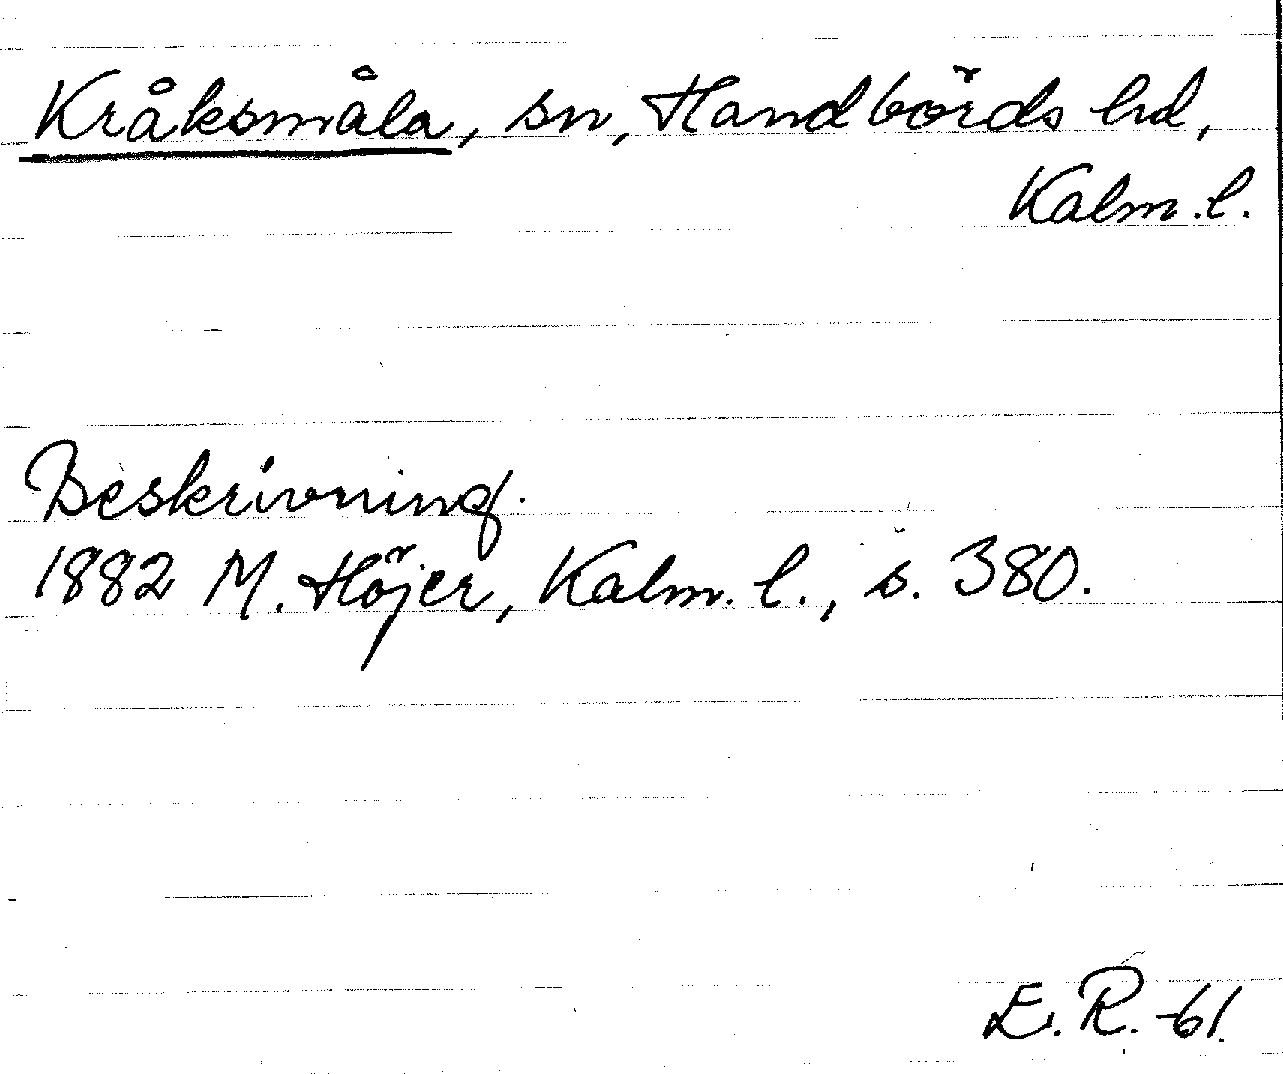 Kråksmåla, sn, Handbörds hd,
Kalm. l.
Beskrivning.
1882 M. Höjer, Kalm. l., s. 380.
E. R. -61.